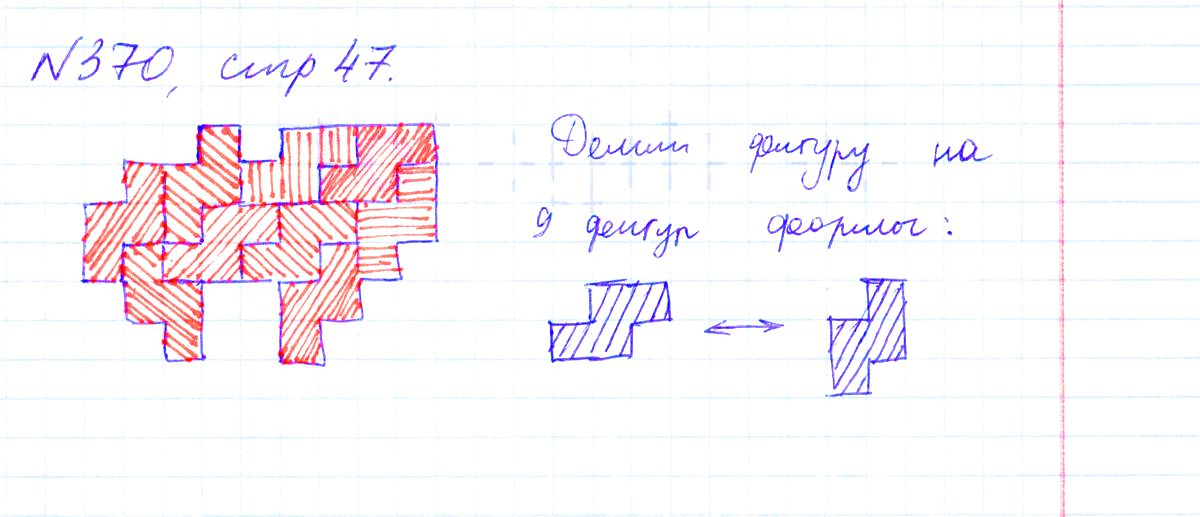 N370, стр 47.
Делим фигуру на
9 фигур формы: